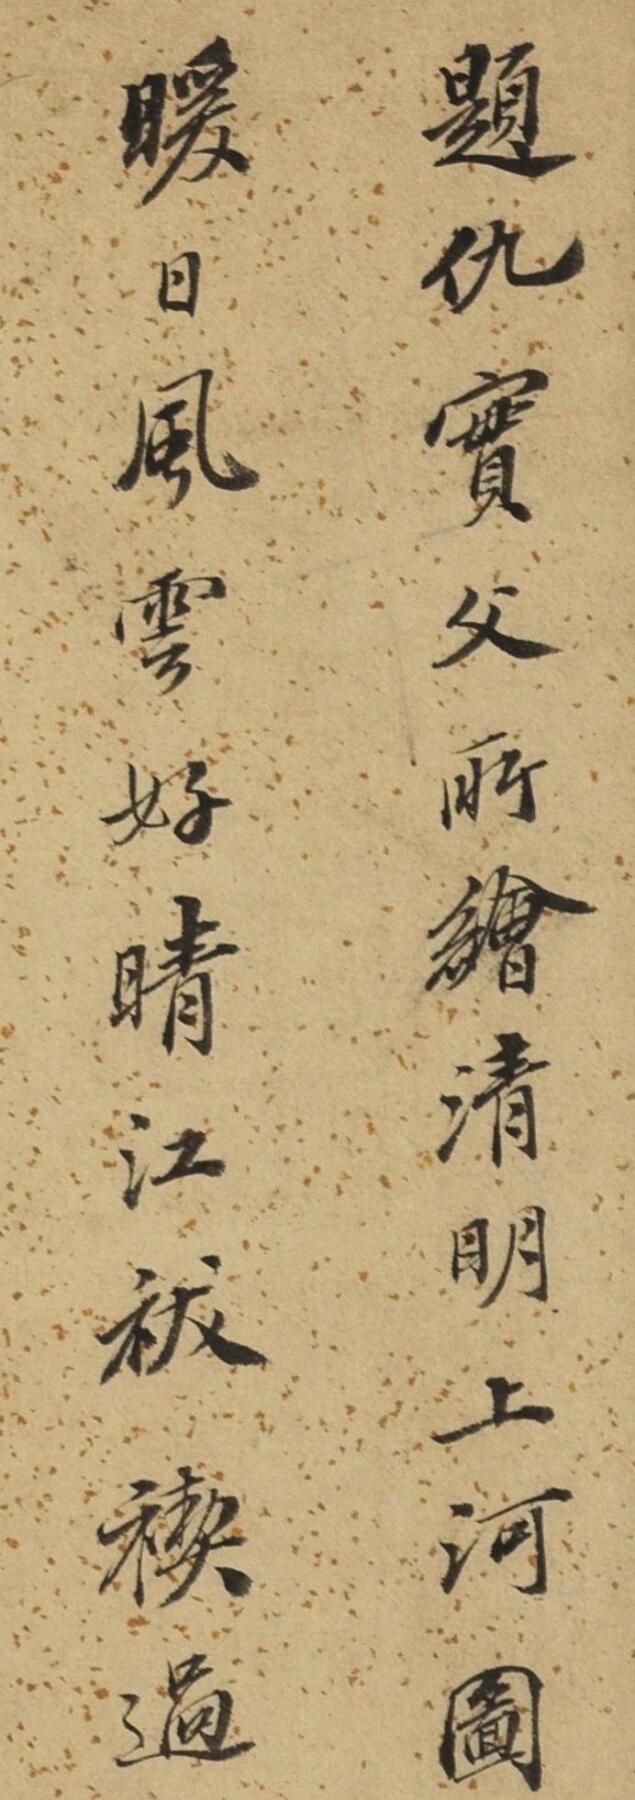 題仇實父所繪清明上河圖
暖日風雲好晴江祓禊過